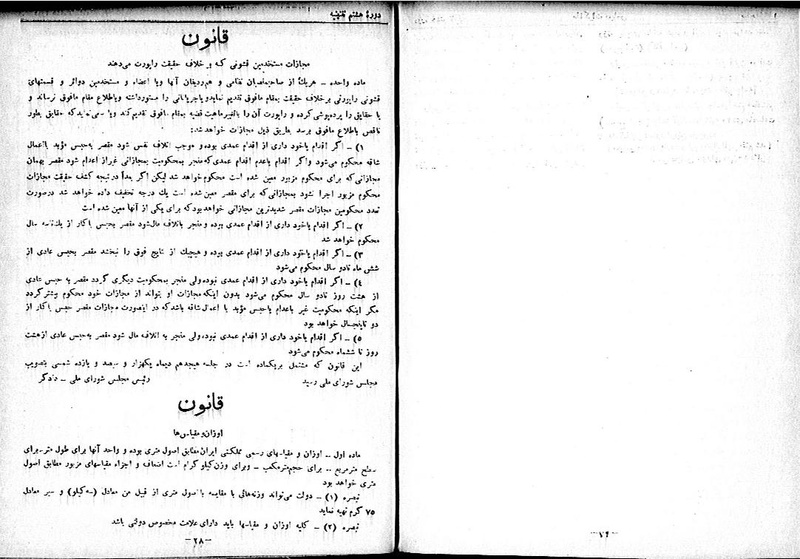 دورهٔ هشتم تقنینیه
قانون
مجازات مستخدمین قشونی که بر خلاف حقیقت راپورت می‌دهند
ماده واحده ــ هریك از صاحبمنصبان نظامی و هم‌ردیفان آنها ویا اعضاء و مستخدمین دوائر و قسمتهای
قشونی راپورتی برخلاف حقیقت بمقام مافوق تقدیم نماید ویا جریاناتی را مستور داشته وباطلاع مقام مافوق نرساند و
یا حقایق را پرده‌پوشی کرده و راپورت آن را بالتغییر ماهیت قضیه بمقام مافوق تقدیم کند ویا سعی نماید که حقایق بطور
ناقص باطلاع مافوق برسد بطریق ذیل مجازات خواهد شد:
۱) ــ اگر اقدام یاخود داری از اقدام عمدی بوده و موجب اتلاف نفس شود مقصر بحبس مؤبد بااعمال
شاقه محکوم می‌شود واگر اقدام یاعدم اقدام عمدی که منجر بمحکومیت بمجازاتی غیر از اعدام شود مقصر بهمان
مجازاتی که برای محکوم مزبور معین شده است محکوم خواهد شد لیکن اگر بعداً در نتیجه کشف حقیقت مجازات
محکوم مزبور اجرا نشود بمجازاتی که برای مقصر معین شده است یك درجه تخفیف داده خواهد شد درصورت
تعدد محکومین مجازات مقصر شدیدترین مجازاتی خواهد بود که برای یکی از آنها معین شده است
۲) ــ اگر اقدام یاخود داری از اقدام عمدی بوده ومنجر باتلاف مال شود مقصر بحبس باکار از یك تا سه سال
محکوم خواهد شد
۳) ــ اگر اقدام یاخود داری از اقدام عمدی بوده و هیچیك از نتایج فوق را نبخشد مقصر بحبس عادی از
شش ماه تا دو سال محکوم می‌شود
٤) ــ اگر اقدام یاخود داری از اقدام عمدی نبوده ولی منجر بمحکومیت دیگری گردد مقصر به حبس عادی
از هشت روز تا دو سال محکوم می‌شود بدون اینکه مجازات او بتواند از مجازات خود محکوم بیشتر گردد
مگر اینکه محکومیت غیر باعدام یاحبس مؤبد با اعمال شاقه باشد که در اینصورت مجازات مقصر حبس باکار از
دو تا پنجسال خواهد بود
۵) ــ اگر اقدام یاخود داری از اقدام عمدی نبوده ولی منجر به اتلاف مال شود مقصر به‌حبس عادی از هشت
روز تا ششماه محکوم می‌شود
این قانون که مشتمل بریکماده است در جلسه هیجدهم دیماه یکهزار و سیصد و یازده شمسی بتصویب
مجلس شورای ملی رسید رئیس مجلس شورای ملی ــ دادگر
قانون
اوزان و مقیاس‌ها
ماده اول ــ اوزان و مقیاسهای رسمی مملکتی ایران مطابق اصول متری بوده و واحد آنها برای طول متر ــ برای
سطح متر مربع ــ برای حجم متر مکعب ــ وبرای وزن کیلو گرام است اضعاف و اجزاء مقیاسهای مزبور مطابق اصول
متری خواهد بود
تبصره (۱) ــ دولت می‌تواند وزنه‌هائی با مقایسه با اصول متری از قبیل من معادل (سه کیلو) و سیر معادل
۷۵ گرم تهیه نماید
تبصره (۲) ــ کلیه اوزان و مقیاسها باید دارای علامت مخصوص دولتی باشد
ــ۲۸ــ